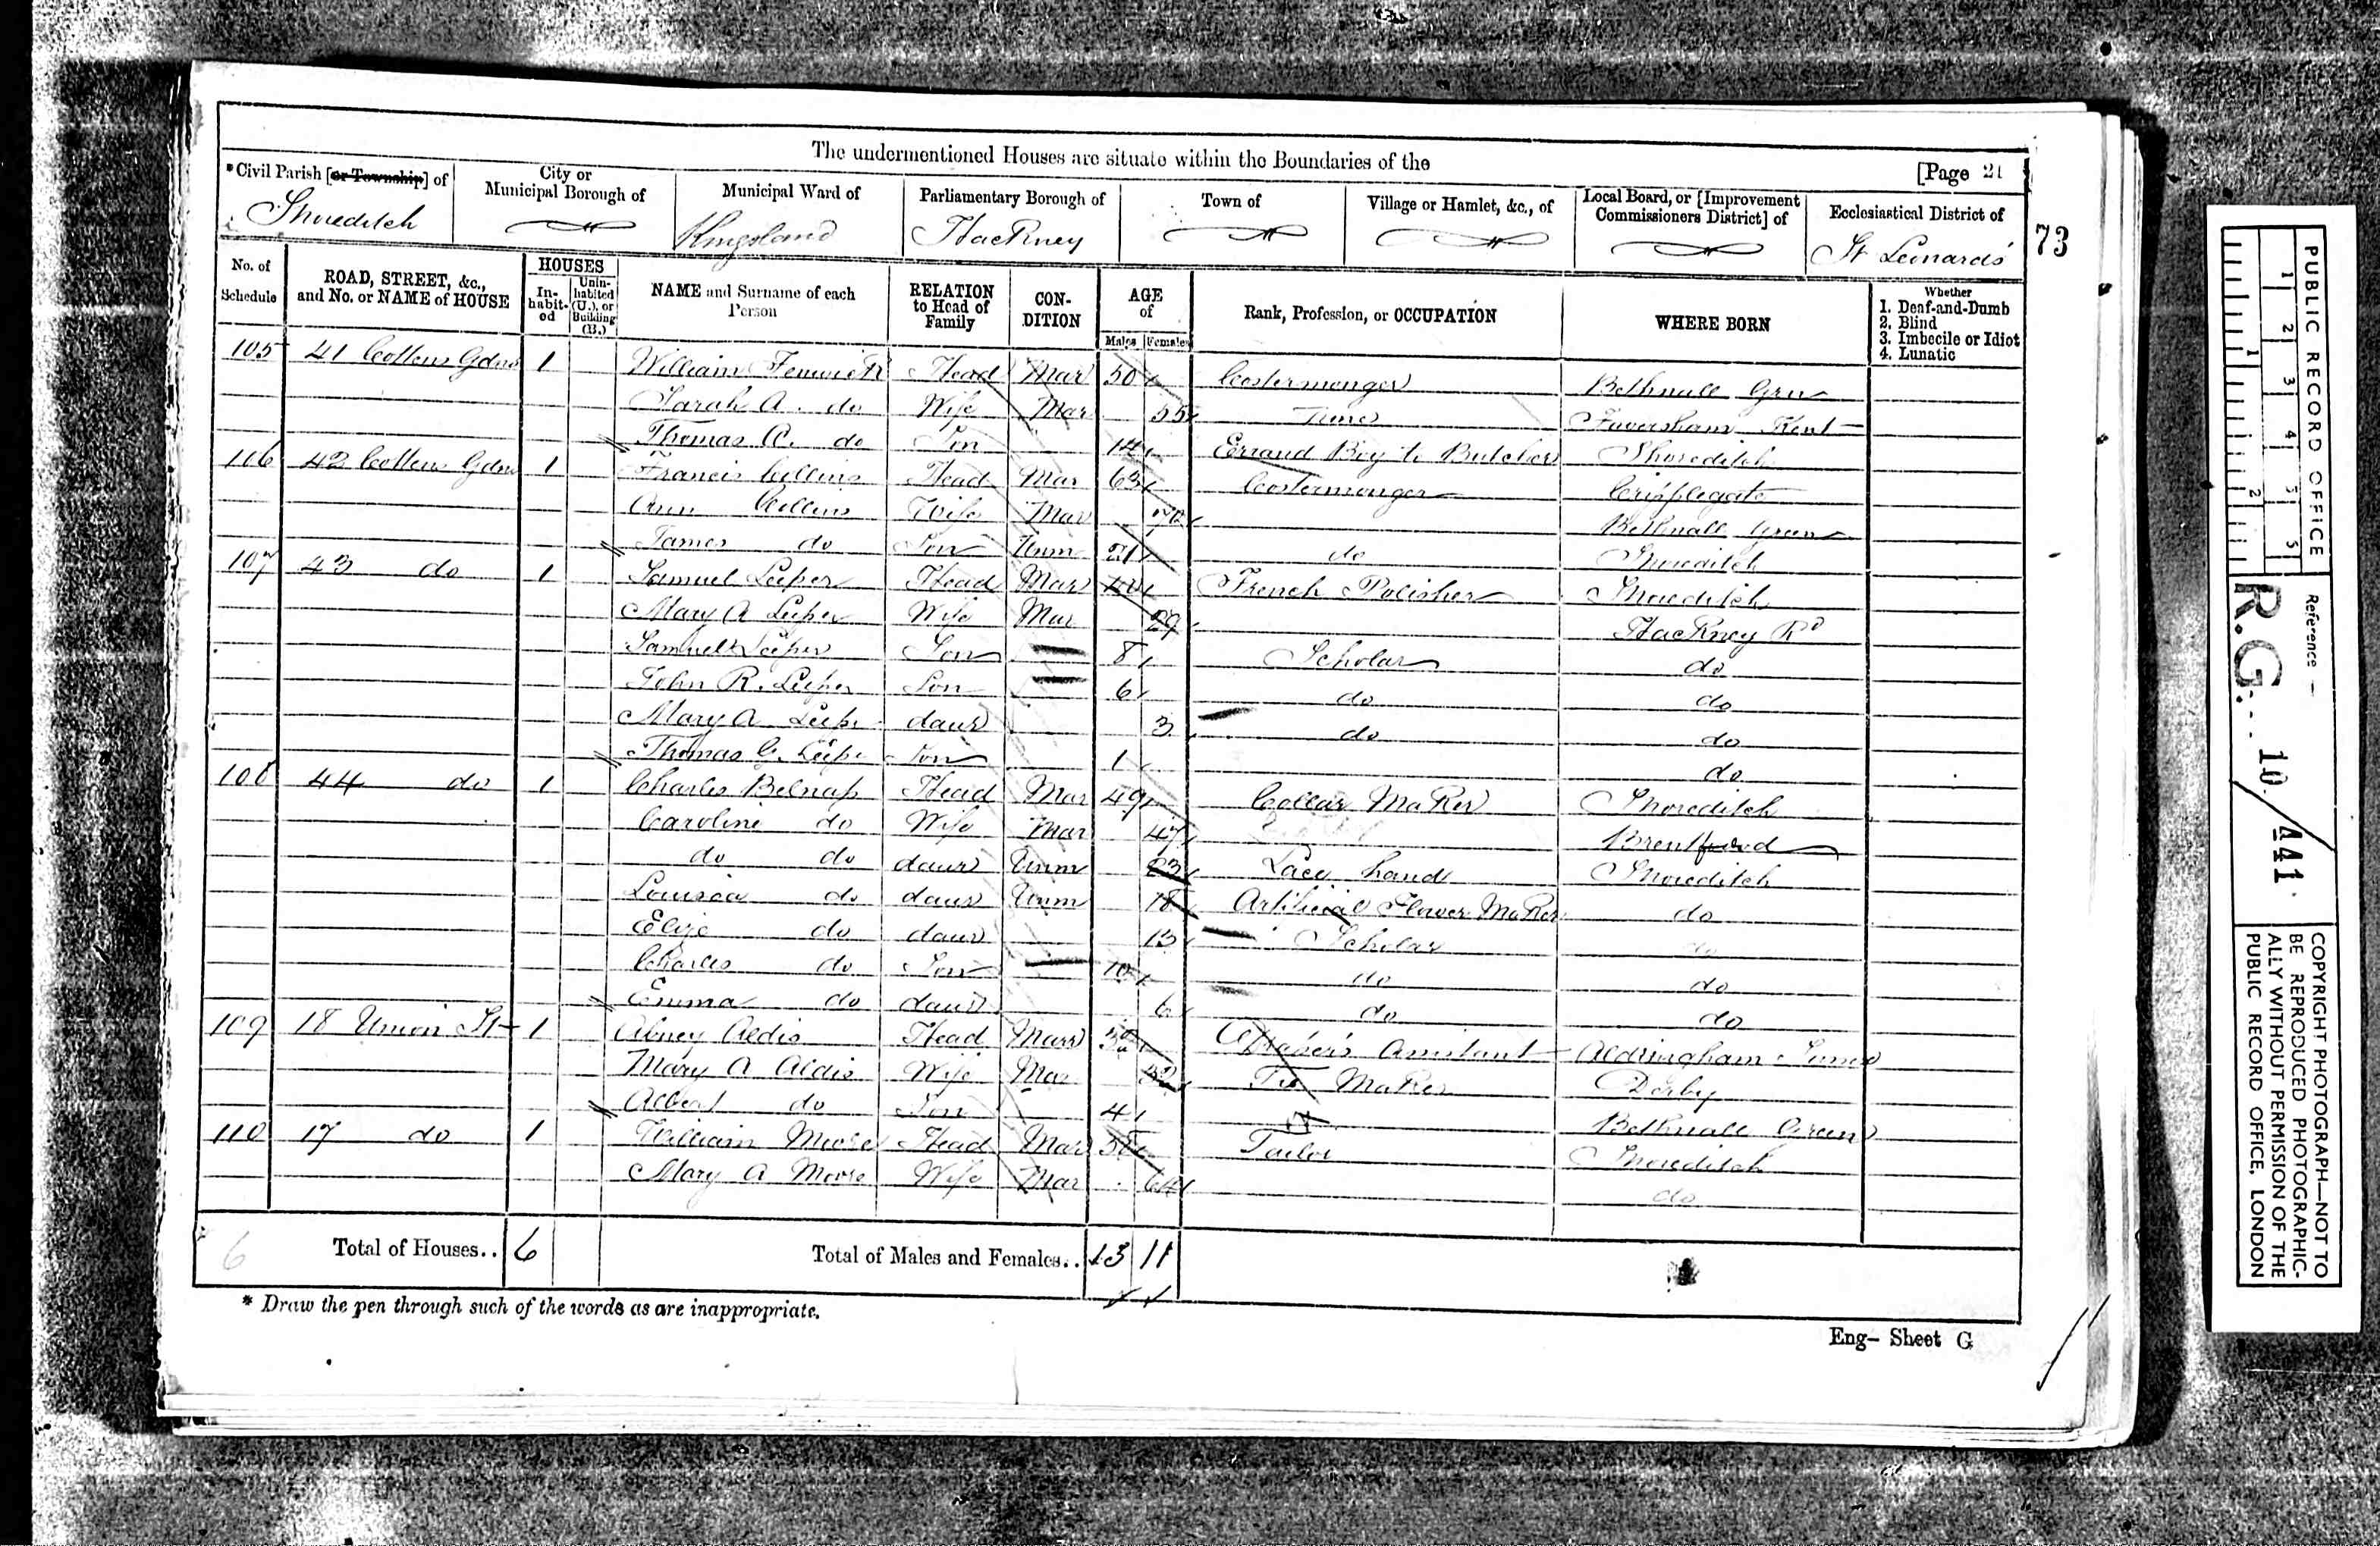 The undermentioned Houses are situate within the Boundaries of the
[Page 21
*Civil Parish [or Township] of
City or Municipal Borough of
Municipal Ward of
Parliamentary Borough of
Town of
Village or Hamlet, &c., of
Local Board, or [Improvement Commissioners District] of
Ecclesiastical District of
Shoreditch
Kingsland
Hackney
St Leonards
73
No. of Schedule
ROAD, STREET, &c., and No. or NAME of HOUSE
HOUSES
In-habit-ed
Unin-habited (U.), or Building (B.)
NAME and Surname of each Person
RELATION to Head of Family
CON-DITION
AGE of
Males
Females
Rank, Profession, or OCCUPATION
WHERE BORN
Whether
1. Deaf-and-Dumb
2. Blind
3. Imbecile or Idiot
4. Lunatic
105 41 Gdns 1 William Fenwick Head Mar 50 Costermonger Bethnall Grn
Sarah A. do Wife Mar 55 Faversham Kent
Thomas A. do Son 14 Errand Boy to Butcher Shoreditch
106 42 Gdns 1 Francis Collins Head Mar 63 Costermonger Cripplegate
Ann Collins Wife Mar 70 Bethnall Green
James do Son Unm 21 do Shoreditch
107 43 do 1 Samuel Leeper Head Mar French Polisher Shoreditch
Mary A Leeper Wife Mar 29 Hackney Rd
Samuel Leeper Son 8 Scholar do
John R. Leeper Son 6 do do
Mary A Leepr daur 3 do do
Thomas G. Leeper Son 1 do
108 44 do 1 Charles Belnap Head Mar 49 Collar Maker Shoreditch
Caroline do Wife Mar 47
do do daur Unm 23 Lace hand Shoreditch
Louisa do daur Unm 18 Artificial Flower Maker do
Eliza do daur 13 Scholar do
Charles do Son 10 do do
Emma do daur 6 do do
109 18 Union St 1 Abney Aldis Head Marr Draper's Assistant Aldringham
Mary A Aldis Wife Mar Tie Maker Derby
Albert do Son 4 Bethnall Green
110 17 do 1 William Moore Head Mar Tailor Shoreditch
Mary A Moore Wife Mar 64 do
6
Total of Houses.. 6
Total of Males and Females.. 13 11
* Draw the pen through such of the words as are inappropriate.
Eng- Sheet G
PUBLIC RECORD OFFICE
1 2 3 4 5
1 2
Reference —
R.G. 10/441
COPYRIGHT PHOTOGRAPH—NOT TO
BE REPRODUCED PHOTOGRAPHIC-
ALLY WITHOUT PERMISSION OF THE
PUBLIC RECORD OFFICE, LONDON